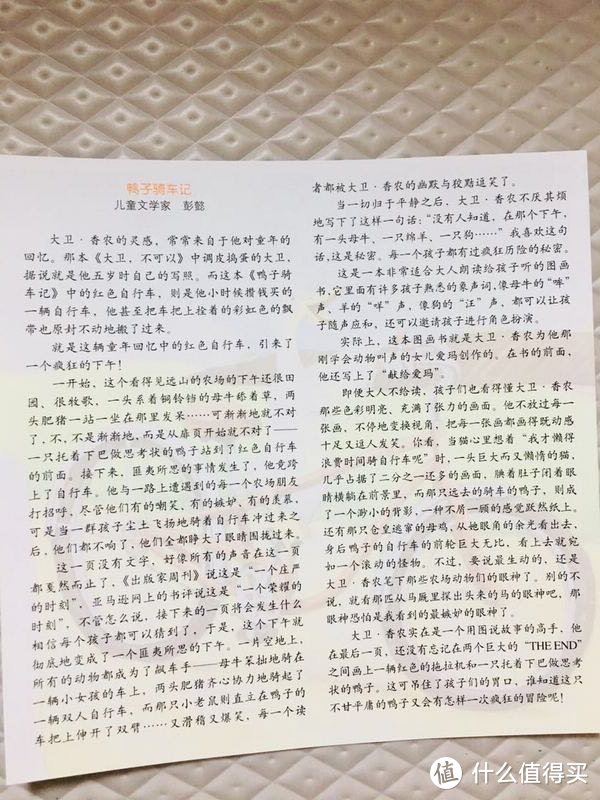 鸭子骑车记
儿童文学家 彭懿
大卫·香农的灵感，常常来自于他对童年的
回忆。那本《大卫，不可以》中调皮捣蛋的大卫，
据说就是他五岁时自己的写照。而这本《鸭子骑
车记》中的红色自行车，则是他小时候攒钱买的
一辆自行车，他甚至把车把上拴着的彩虹色的飘
带也原封不动地搬了过来。
就是这辆童年回忆中的红色自行车，引来了
一个疯狂的下午！
一开始，这个看得见远山的农场的下午还很田
园、很牧歌，一头系着铜铃铛的母牛舔着草，两
头肥猪一站一坐在那里发呆……可渐渐地就不对
了，不，不是渐渐地，而是从扉页开始就不对了——
一只托着下巴做思考状的鸭子站到了红色自行车
的前面。接下来，匪夷所思的事情发生了，他竟跨
上了自行车。他与一路上遭遇到的每一个农场朋友
打招呼，尽管他们有的嘲笑、有的嫉妒、有的羡慕，
可是当一群孩子尘土飞扬地骑着自行车冲过来之
后，他们都不响了，他们全都睁大了眼睛围拢过来。
这一页没有文字，好像所有的声音在这一页
都戛然而止了，《出版家周刊》说这是“一个庄严
的时刻”，亚马逊网上的书评说这是“一个荣耀的
时刻”，不管怎么说，接下来的一页将会发生什么
相信每个孩子都可以猜到了，于是，这个下午就
彻底地变成了一个匪夷所思的下午。一片空地上，
所有的动物都成为了飙车手——母牛笨拙地骑在
一辆小女孩的车上，两头肥猪齐心协力地骑起了
一辆双人自行车，而那只小老鼠则直立在鸭子的
车把上伸开了双臂……又滑稽又爆笑，每一个读
者都被大卫·香农的幽默与狡黠逗笑了。
当一切归于平静之后，大卫·香农不厌其烦
地写下了这样一句话：“没有人知道，在那个下午，
有一头母牛、一只绵羊、一只狗……”我喜欢这句
话，这是秘密。每一个孩子都有过疯狂历险的秘密。
这是一本非常适合大人朗读给孩子听的图画
书，它里面有许多孩子熟悉的象声词，像母牛的“哞”
声、羊的“咩”声，像狗的“汪”声，都可以让孩
子随声应和，还可以邀请孩子进行角色扮演。
实际上，这本图画书就是大卫·香农为他那
刚学会动物叫声的女儿爱玛创作的。在书的前面，
他还写上了“献给爱玛”。
即使大人不给读，孩子们也看得懂大卫·香农
那些色彩明亮、充满了张力的画面。他不放过每一
张画，不停地变换视角，把每一张画都画得既动感
十足又逗人发笑。你看，当猫心里想着“我才懒得
浪费时间骑自行车呢”时，一头巨大而又懒惰的猫，
几乎占据了二分之一还多的画面，腆着肚子闭着眼
睛横躺在前景里，而那只远去的骑车的鸭子，则成
了一个渺小的背影，一种不屑一顾的感觉跃然纸上。
还有那只仓皇逃窜的母鸡，从她眼角的余光看出去，
身后鸭子的自行车的前轮巨大无比，看上去就宛
如一个滚动的怪物。不过，要说最生动的，还是
大卫·香农笔下那些农场动物们的眼神了。别的不
说，就看那匹从马厩里探出头来的马的眼神吧，那
眼神恐怕是我看到的最嫉妒的眼神了。
大卫·香农实在是一个用图说故事的高手，他
在最后一页，还没有忘记在两个巨大的“THE END”
之间画上一辆红色的拖拉机和一只托着下巴做思考
状的鸭子。这可吊住了孩子们的胃口，谁知道这只
不甘平庸的鸭子又会有怎样一次疯狂的冒险呢！
值 什么值得买